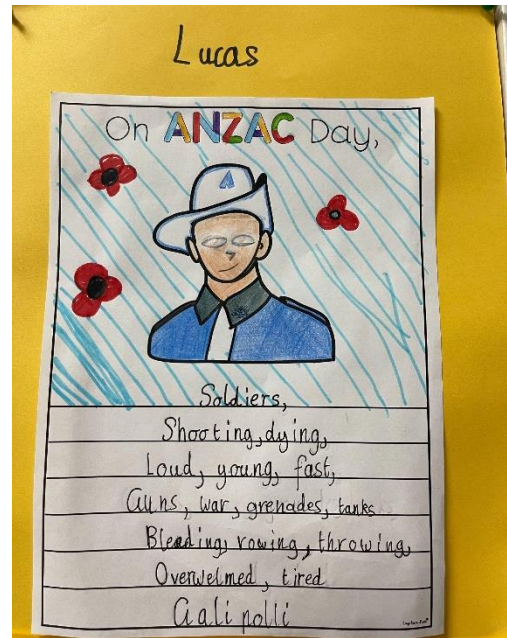 Lucas
On ANZAC Day,
Soldiers,
Shooting, dying,
Loud, young, fast,
Guns, war, grenades, tanks
Bleeding, rowing, throwing,
Overwelmed, tired
Galipolli